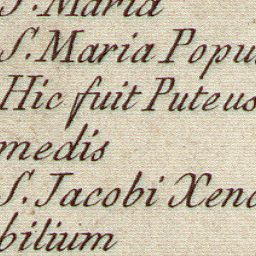 S. Maria
S. Maria Popu
Hic fuit Puteus
medis
S. Jacobi Xeno
bilium